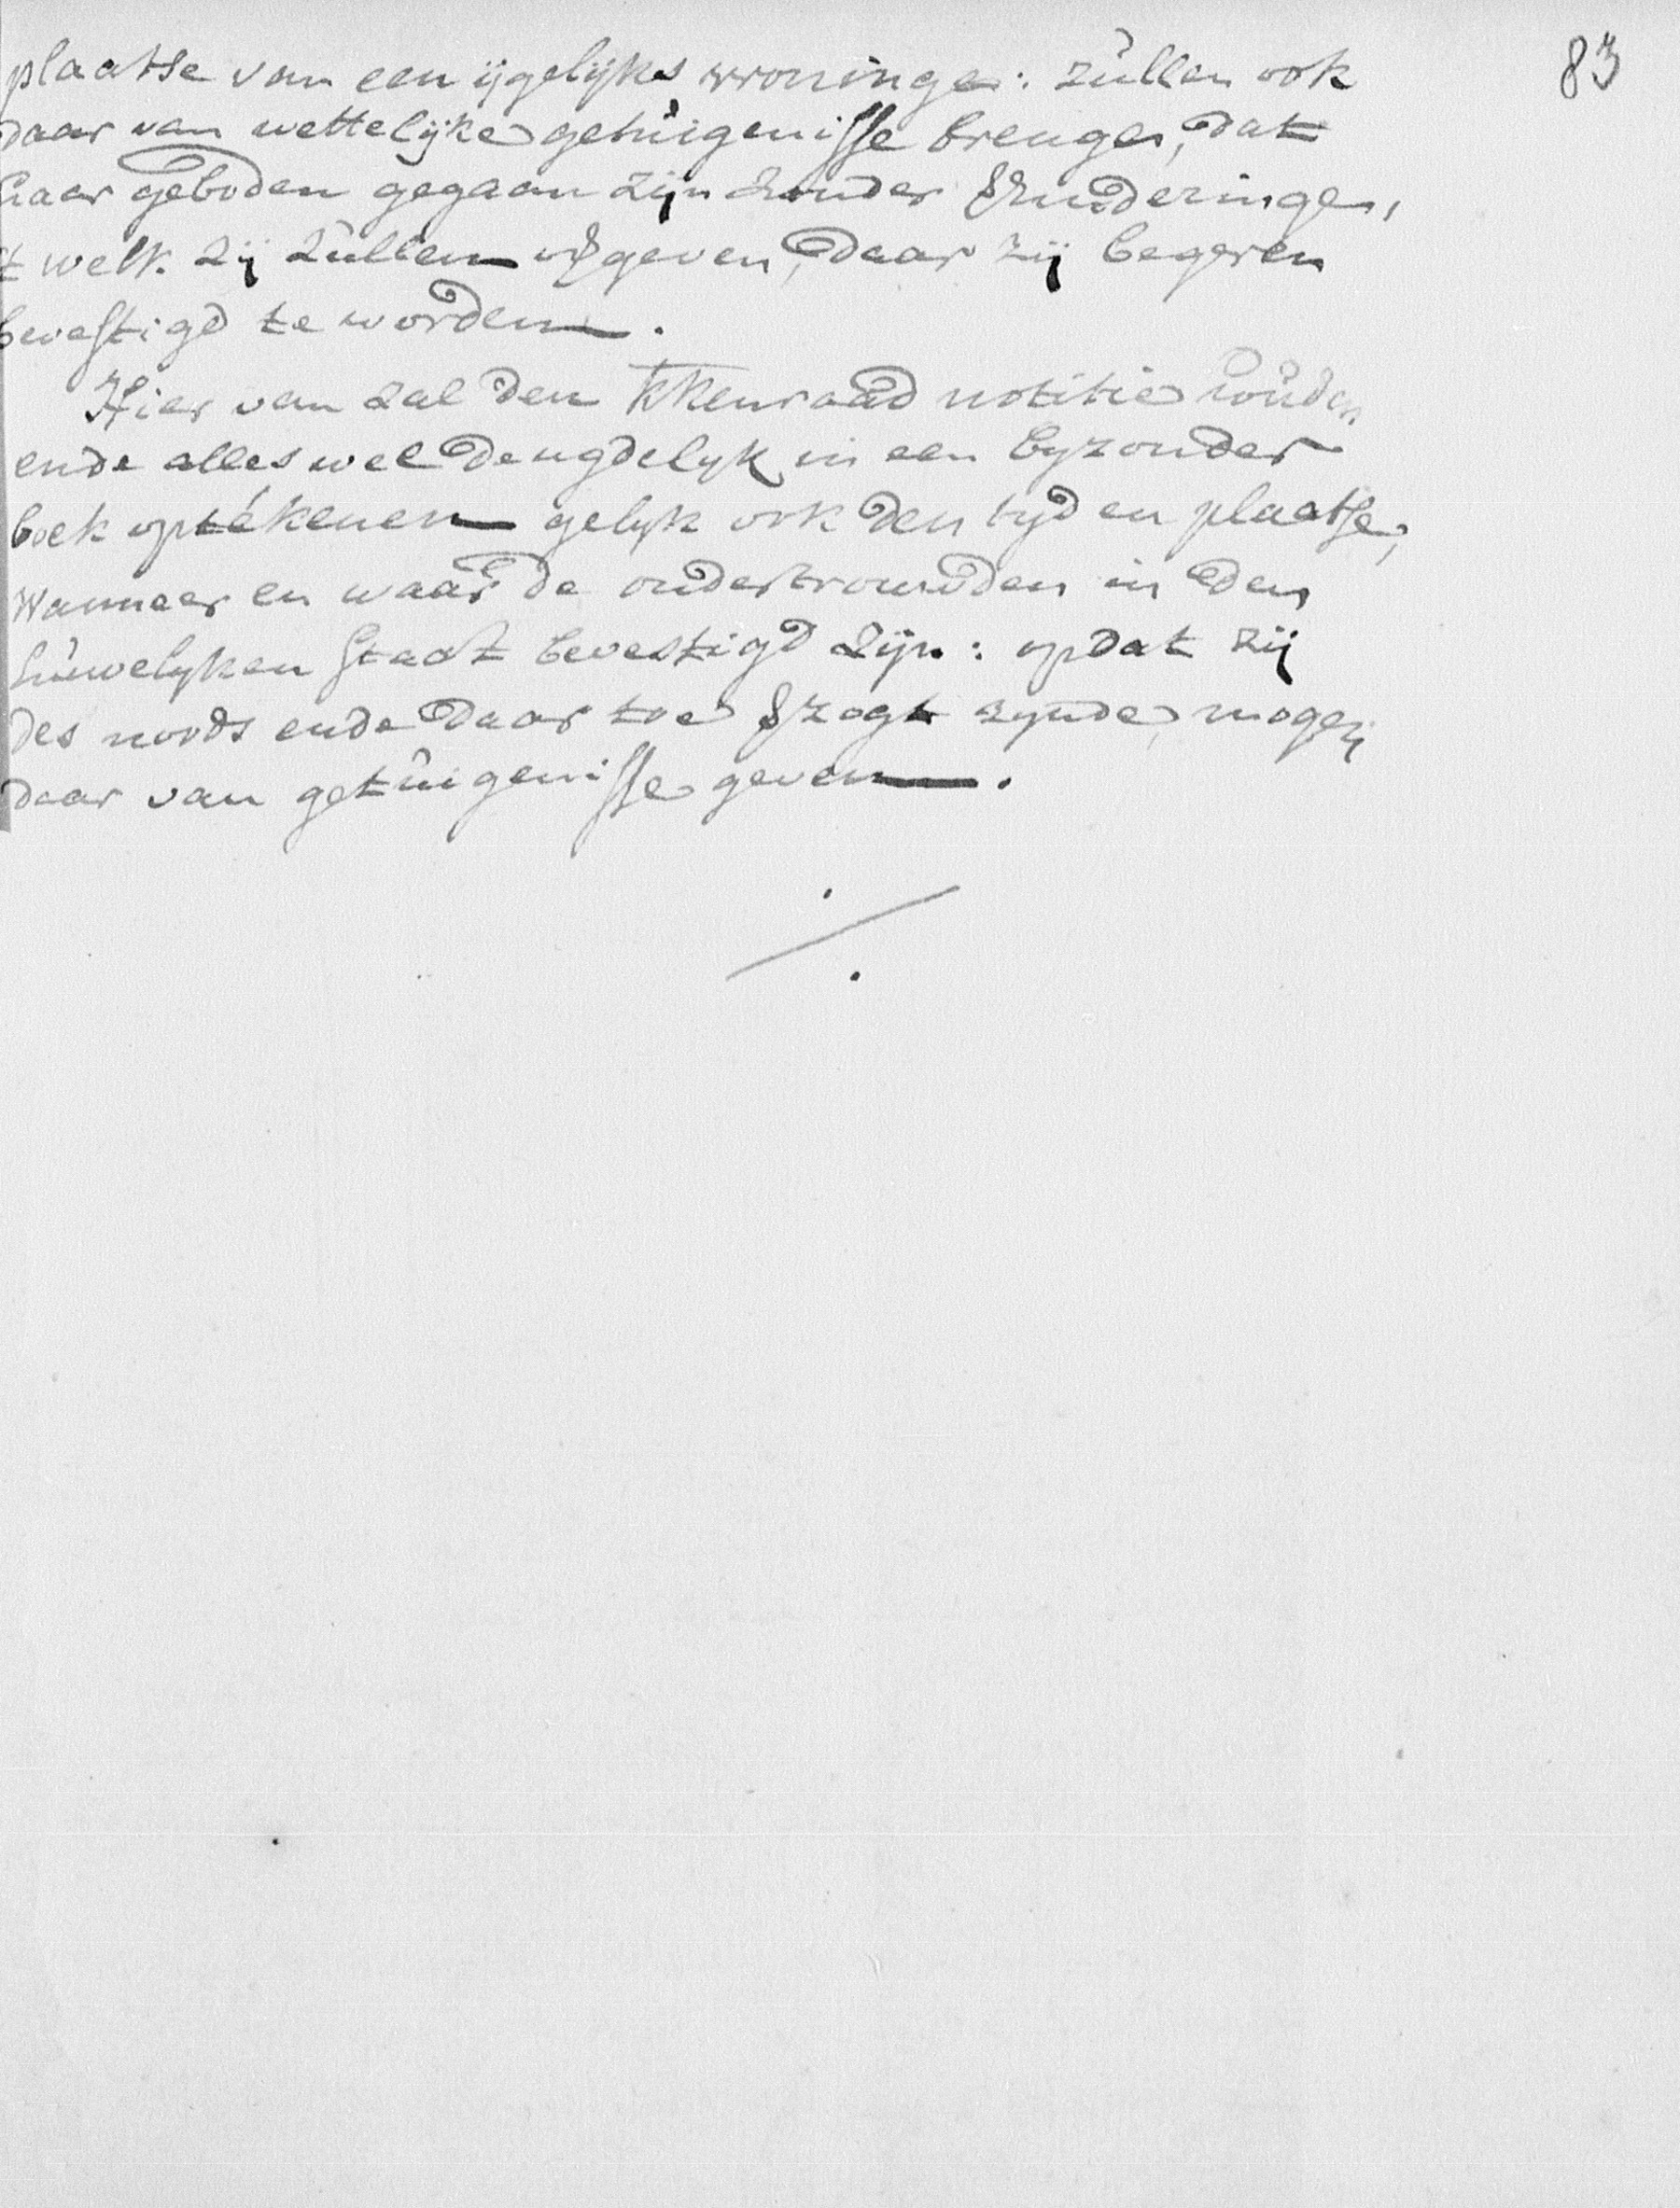 83
plaatse van een ijgelijks wooninge: zullen ook
daar van wettelijke getuigenisse brengen, dat
haar geboden gegaan zijn zonder hinderinge,
't welk zij zullen geven, daar zij begeren
bevestigd te worden.
Hier van zal den KKenraad notitie houden
ende alles wel deugdelyk in een byzonder
boek optékenen gelyk ook den tyd en plaatse,
wanneer en waar de ondertrouwden in den
huwelyken staat bevestigd zijn: opdat zij
des noods ende daar toe zynde, mogen
daar van getuigenisse geven.